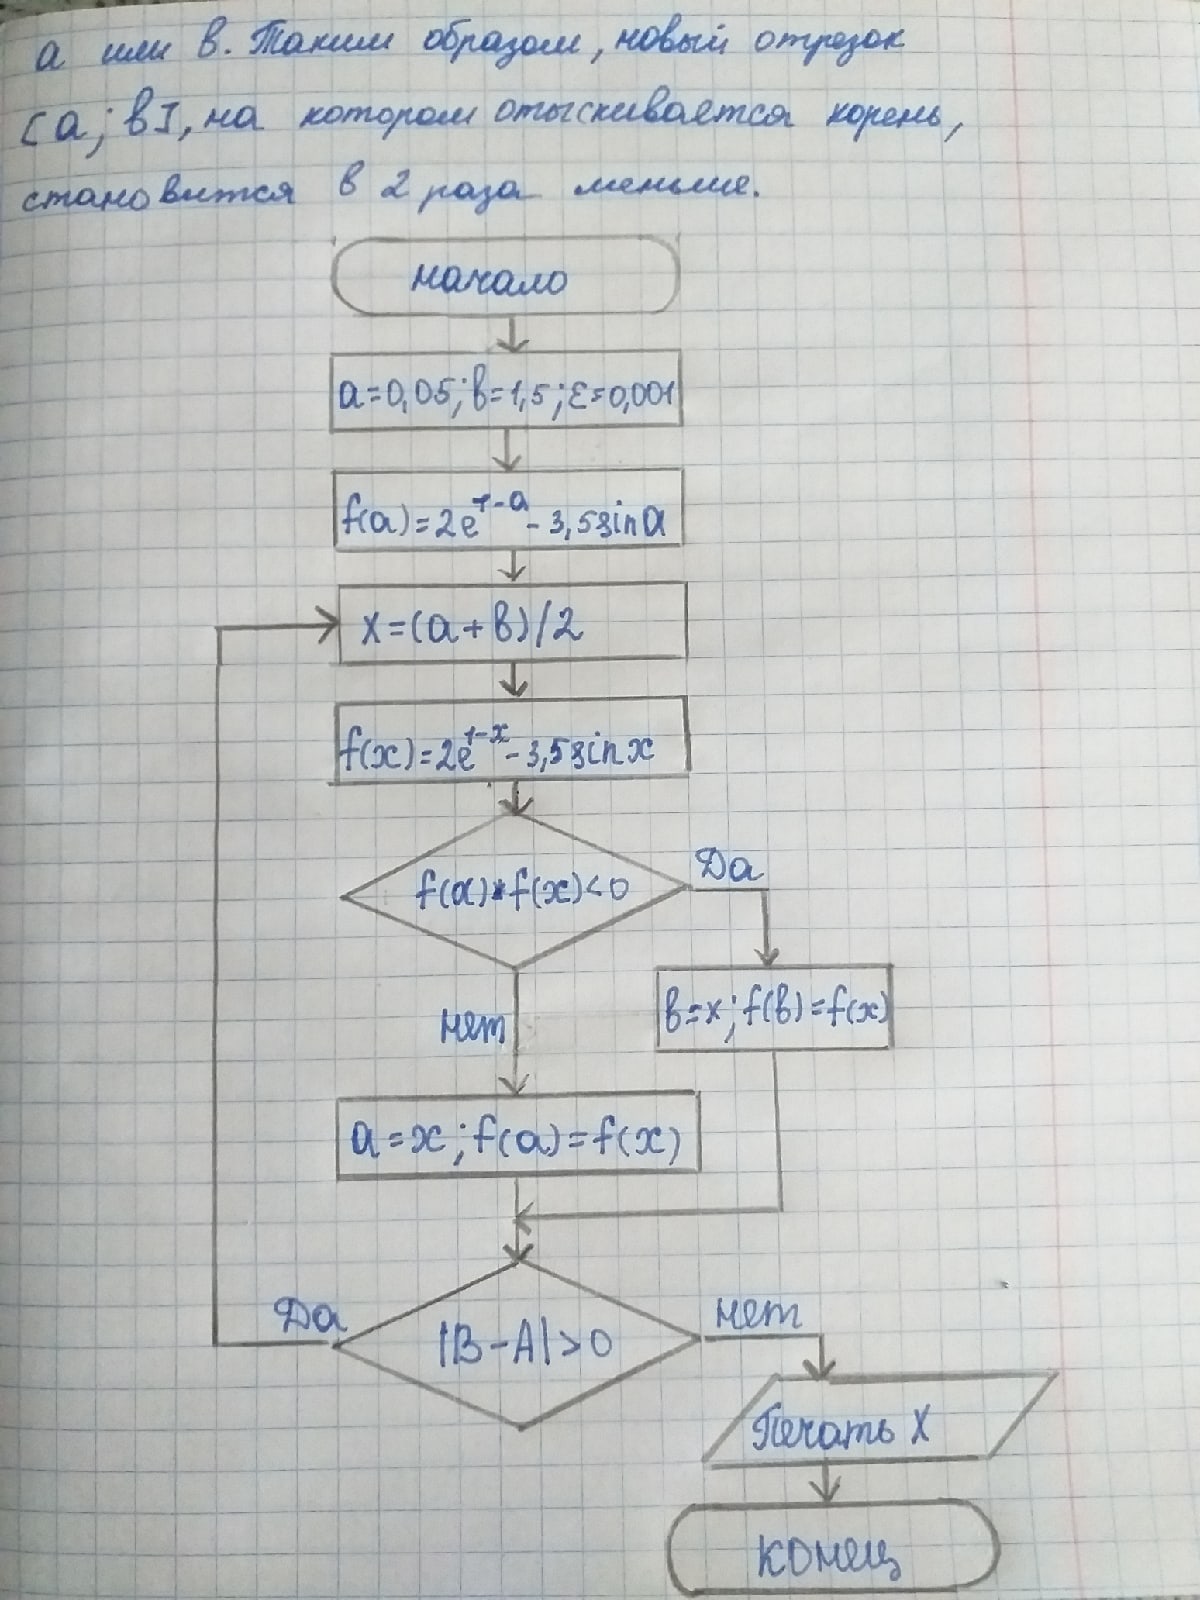 а или в. Таким образом, новый отрезок
[а; в], на котором отыскивается корень,
становится в 2 раза меньше.
начало
a=0,05; в=1,5; ε=0,001
f(a)=2e^1-a - 3,5sina
x=(a+в)/2
f(x)=2e^1-x - 3,5sinx
f(a)*f(x)<0
Да
нет
в=x; f(в)=f(x)
a=x; f(a)=f(x)
Да
|B-A|>0
нет
Печать X
конец